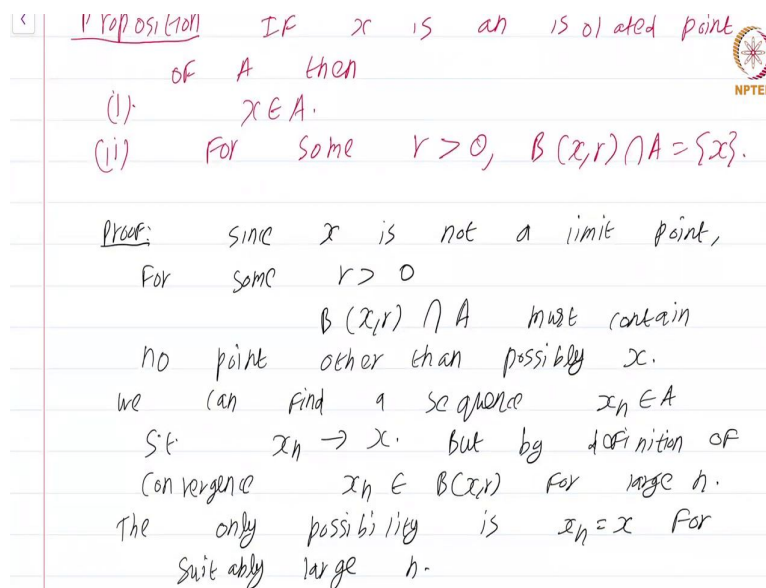 Proposition IF x is an isolated point
OF A then
(i). x ∈ A.
(ii) For some r > 0, B(x,r) ∩ A = {x}.
NPTEL
Proof: Since x is not a limit point,
For some r > 0
B(x,r) ∩ A must contain
no point other than possibly x.
We can find a sequence xₙ ∈ A
S.t. xₙ → x. But by definition OF
Convergence xₙ ∈ B(x,r) For large n.
The only possibility is xₙ = x For
Suitably large n.